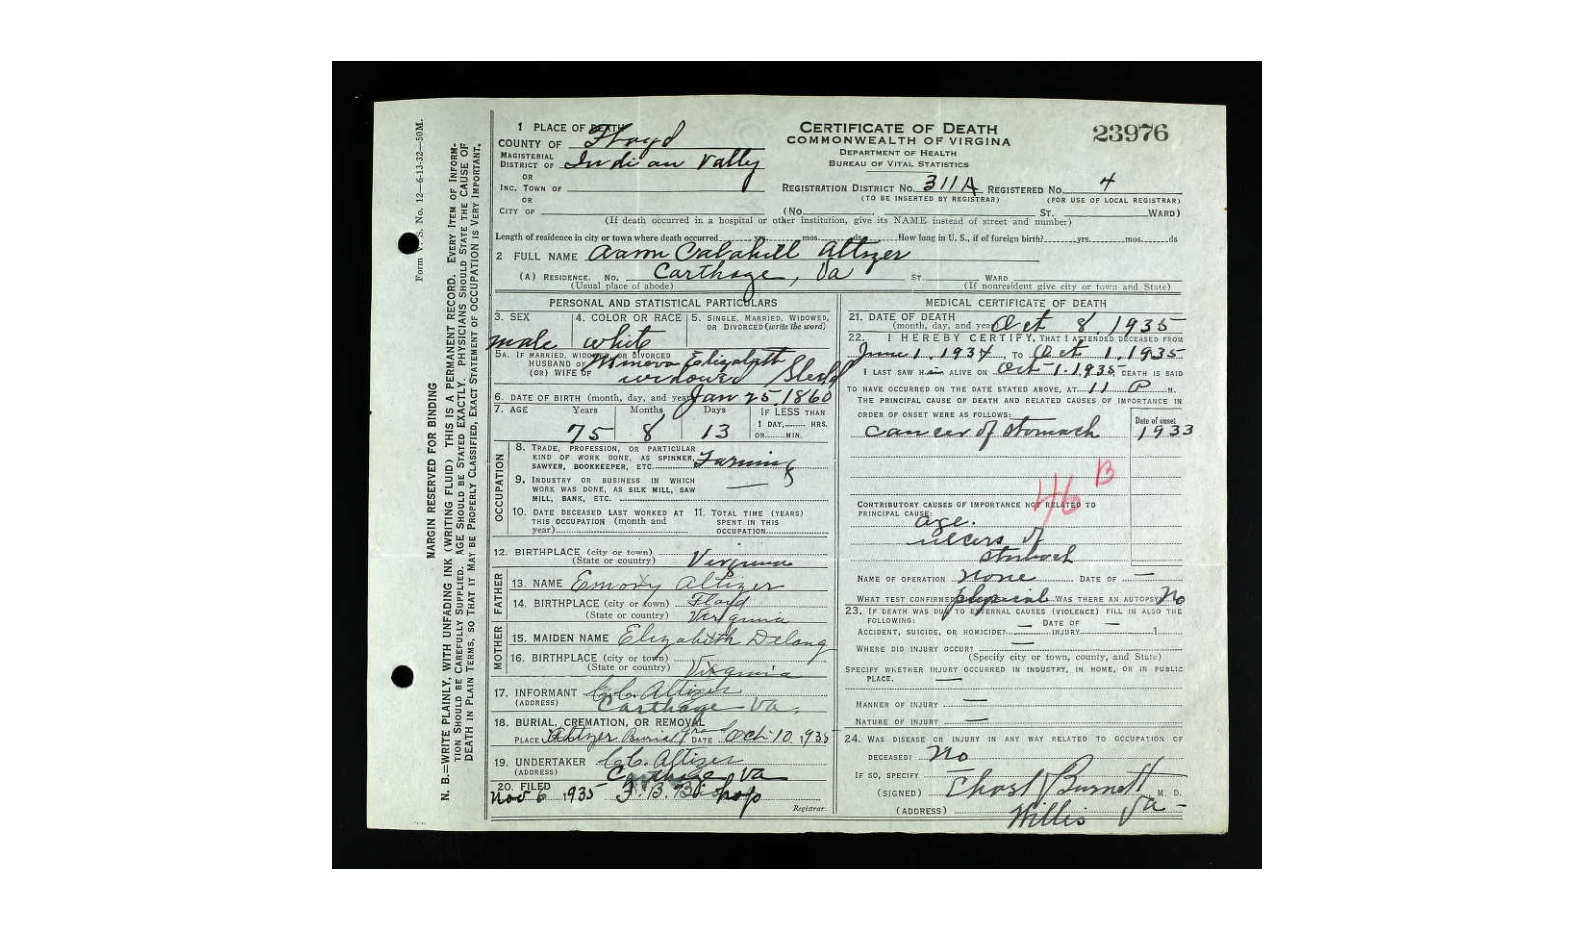 Form V. S. No. 12—6-13-32—50M.
MARGIN RESERVED FOR BINDING
N. B.=WRITE PLAINLY, WITH UNFADING INK (WRITING FLUID) THIS IS A PERMANENT RECORD. EVERY ITEM OF INFORM-
TION SHOULD BE CAREFULLY SUPPLIED. AGE SHOULD BE STATED EXACTLY. PHYSICIANS SHOULD STATE THE CAUSE OF
DEATH IN PLAIN TERMS, SO THAT IT MAY BE PROPERLY CLASSIFIED, EXACT STATEMENT OF OCCUPATION IS VERY IMPORTANT.
1 PLACE OF DEATH
COUNTY OF Floyd
MAGISTERIAL
DISTRICT OF Indian Vally
OR
INC. TOWN OF
OR
CITY OF
CERTIFICATE OF DEATH
COMMONWEALTH OF VIRGINIA
DEPARTMENT OF HEALTH
BUREAU OF VITAL STATISTICS
23976
REGISTRATION DISTRICT NO. 311A REGISTERED NO. 4
(TO BE INSERTED BY REGISTRAR) (FOR USE OF LOCAL REGISTRAR)
(No. ST. WARD)
(If death occurred in a hospital or other institution, give its NAME instead of street and number)
Length of residence in city or town where death occurred yrs. mos. ds. How long in U. S., if of foreign birth? yrs. mos. ds
2 FULL NAME Aaron Altizer
(A) RESIDENCE. No. Carthage, Va ST. WARD
(Usual place of abode) (If nonresident give city or town and State)
PERSONAL AND STATISTICAL PARTICULARS
3. SEX male
4. COLOR OR RACE white
5. SINGLE, MARRIED, WIDOWED,
OR DIVORCED (write the word)
5A. IF MARRIED, WIDOWED, OR DIVORCED
HUSBAND OF Elizabeth
(OR) WIFE OF widower
6. DATE OF BIRTH (month, day, and year) Jan 25, 1860
7. AGE Years Months Days IF LESS THAN
75 8 13 1 DAY, HRS.
OR MIN.
OCCUPATION
8. TRADE, PROFESSION, OR PARTICULAR
KIND OF WORK DONE, AS SPINNER,
SAWYER, BOOKKEEPER, ETC. Farming
9. INDUSTRY OR BUSINESS IN WHICH
WORK WAS DONE, AS SILK MILL, SAW
MILL, BANK, ETC. —
10. DATE DECEASED LAST WORKED AT
THIS OCCUPATION (month and
year)
11. TOTAL TIME (YEARS)
SPENT IN THIS
OCCUPATION
12. BIRTHPLACE (city or town)
(State or country) Virginia
FATHER
13. NAME Emory Altizer
14. BIRTHPLACE (city or town) Floyd
(State or country) Virginia
MOTHER
15. MAIDEN NAME Elizabeth Delong
16. BIRTHPLACE (city or town)
(State or country) Virginia
17. INFORMANT C.C. Altizer
(ADDRESS) Carthage Va.
18. BURIAL, CREMATION, OR REMOVAL
PLACE Altizer Burial grand DATE Oct 10, 1935
19. UNDERTAKER C.C. Altizer
(ADDRESS) Carthage Va
20. FILED
Nov 6, 1935 F. B. Bishop
Registrar.
MEDICAL CERTIFICATE OF DEATH
21. DATE OF DEATH
(month, day, and year) Oct 8, 1935
22. I HEREBY CERTIFY, THAT I ATTENDED DECEASED FROM
June 1, 1934, TO Oct 1, 1935
I LAST SAW Him ALIVE ON Oct 1, 1935. DEATH IS SAID
TO HAVE OCCURRED ON THE DATE STATED ABOVE, AT 11 P M.
THE PRINCIPAL CAUSE OF DEATH AND RELATED CAUSES OF IMPORTANCE IN
ORDER OF ONSET WERE AS FOLLOWS:
Date of onset
cancer of stomach 1933
46 B
CONTRIBUTORY CAUSES OF IMPORTANCE NOT RELATED TO
PRINCIPAL CAUSE:
age.
ulcers of
stomach
NAME OF OPERATION none DATE OF —
WHAT TEST CONFIRMED physical WAS THERE AN AUTOPSY No
23. IF DEATH WAS DUE TO EXTERNAL CAUSES (VIOLENCE) FILL IN ALSO THE
FOLLOWING:
ACCIDENT, SUICIDE, OR HOMICIDE? — DATE OF INJURY — 1
WHERE DID INJURY OCCUR? —
(Specify city or town, county, and State)
SPECIFY WHETHER INJURY OCCURRED IN INDUSTRY, IN HOME, OR IN PUBLIC
PLACE. —
MANNER OF INJURY —
NATURE OF INJURY —
24. WAS DISEASE OR INJURY IN ANY WAY RELATED TO OCCUPATION OF
DECEASED? No
IF SO, SPECIFY —
(SIGNED) Burnett M. D.
(ADDRESS) Willis Va -